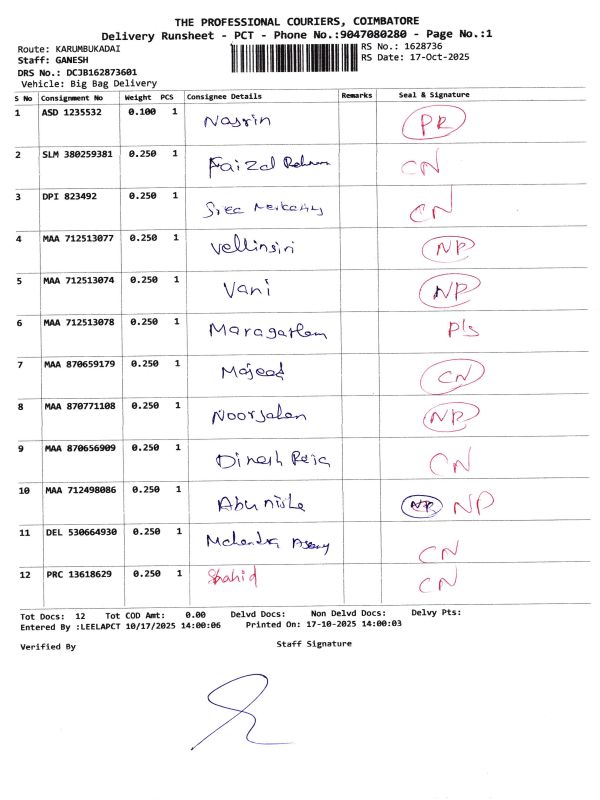 THE PROFESSIONAL COURIERS, COIMBATORE
Delivery Runsheet - PCT - Phone No.:9047080280 - Page No.:1
Route: KARUMBUKADAI RS No.: 1628736
Staff: GANESH RS Date: 17-Oct-2025
DRS No.: DCJB162873601
Vehicle: Big Bag Delivery
S No Consignment No Weight PCS Consignee Details Remarks Seal & Signature
1 ASD 1235532 0.100 1 Nasrin PR
2 SLM 380259381 0.250 1 Faizal CN
3 DPI 823492 0.250 1 Sree CN
4 MAA 712513077 0.250 1 Vellinsiri NP
5 MAA 712513074 0.250 1 Vani NP
6 MAA 712513078 0.250 1 P/s
7 MAA 870659179 0.250 1 Majeed CN
8 MAA 870771108 0.250 1 Noorjahan NP
9 MAA 870656909 0.250 1 Dinesh CN
10 MAA 712498086 0.250 1 Abu Nisha NP NP
11 DEL 530664930 0.250 1 Mahendra CN
12 PRC 13618629 0.250 1 Shahid CN
Tot Docs: 12 Tot COD Amt: 0.00 Delvd Docs: Non Delvd Docs: Delvy Pts:
Entered By :LEELAPCT 10/17/2025 14:00:06 Printed On: 17-10-2025 14:00:03
Verified By Staff Signature